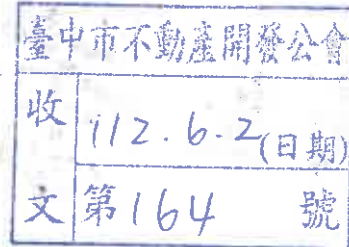 臺中市不動產開發公會
收文
112.6.2(日期)
第164號